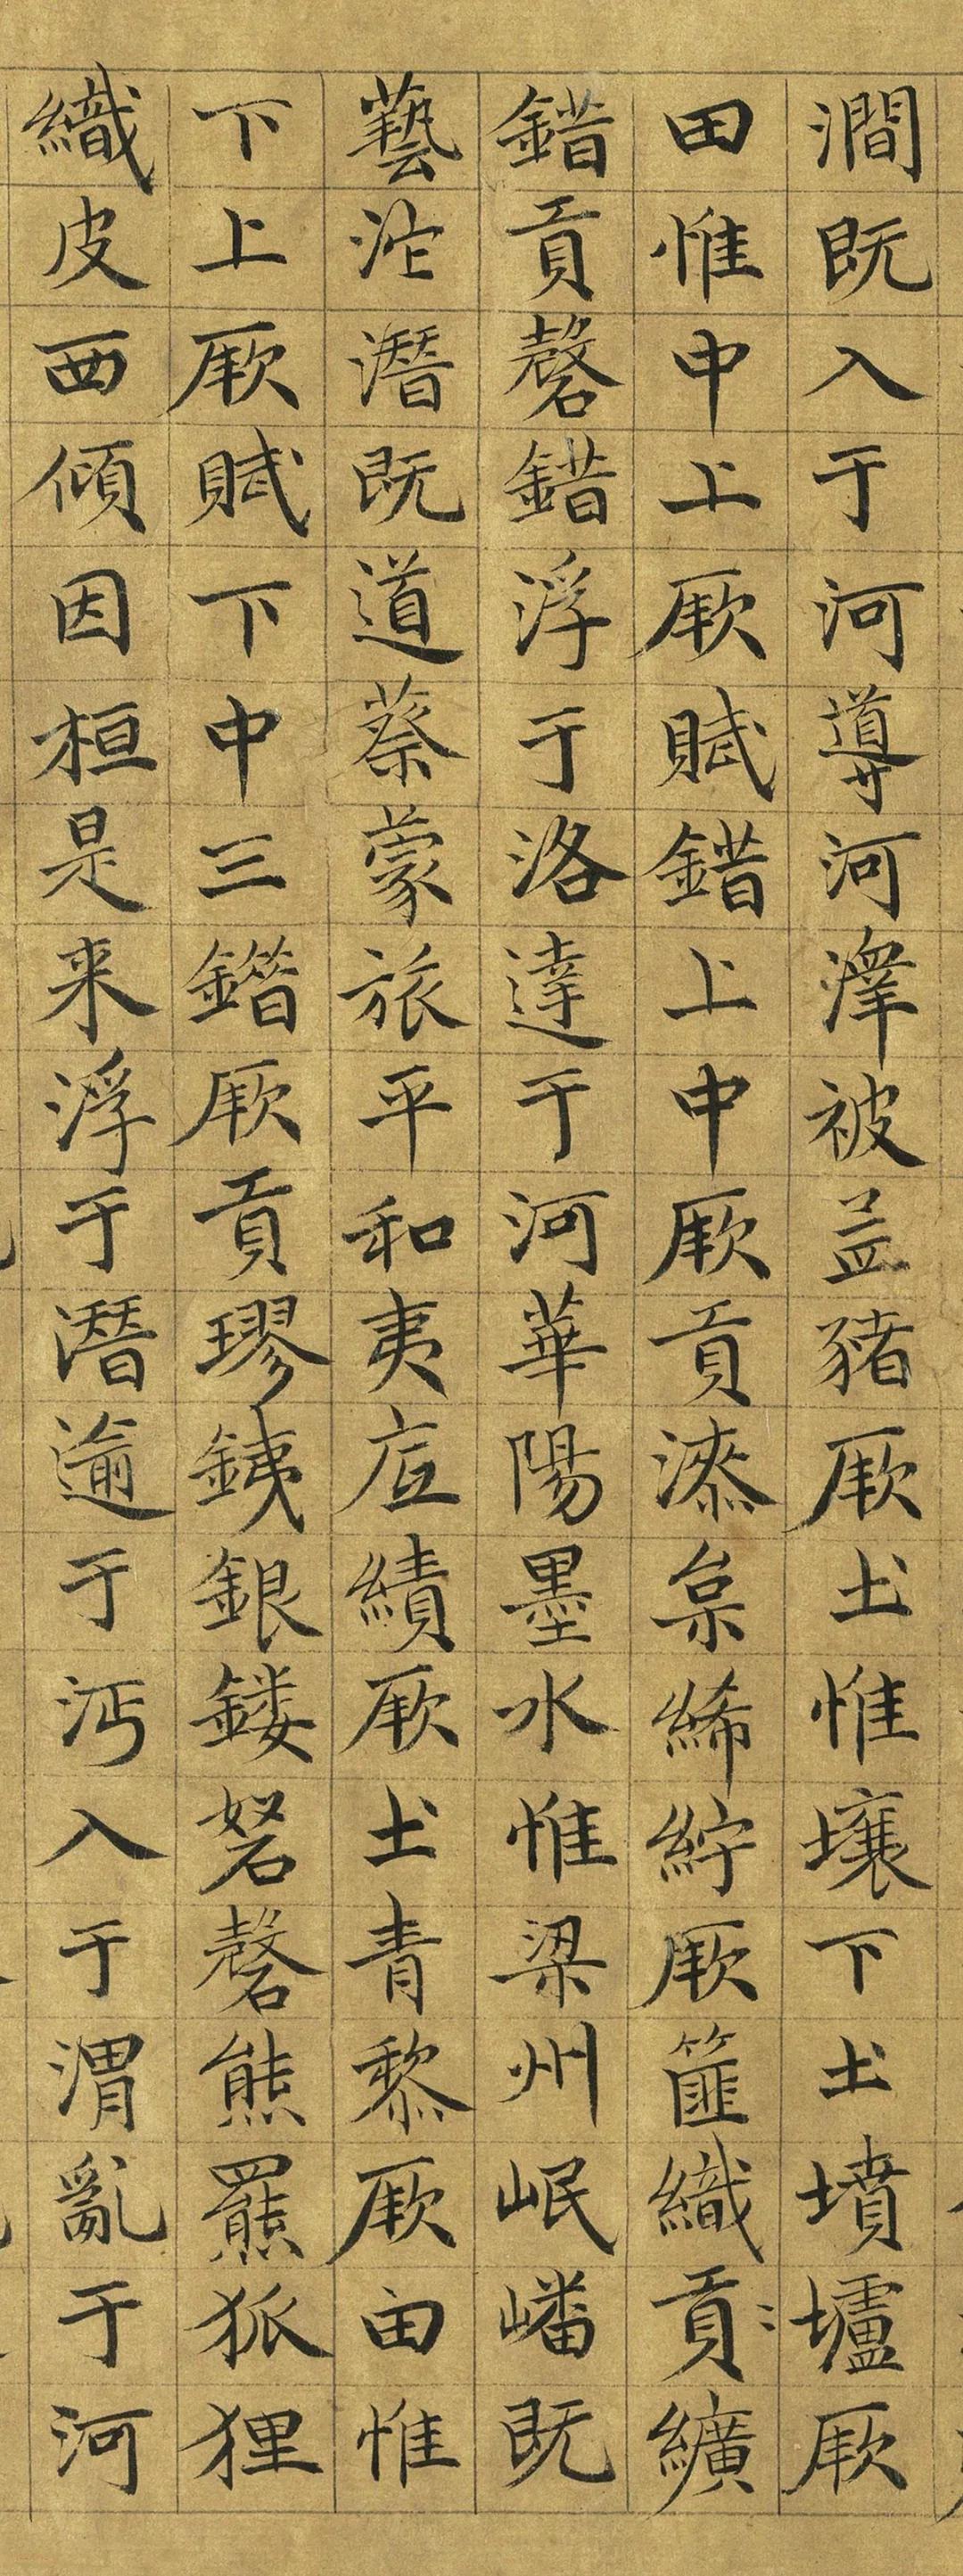 澗既入于河導河澤被益豬厥土惟壤下土墳壚厥
田惟中上厥賦錯上中厥貢漆枲絺紵厥篚織貢纊
錯貢磬錯浮于洛達于河華陽墨水惟梁州岷嶓既
藝沱潛既道蔡蒙旅平和夷厎績厥土青黎厥田惟
下上厥賦下中三錯厥貢璆銕銀鏤砮磬熊羆狐狸
織皮西傾因桓是来浮于潛逾于沔入于渭亂于河